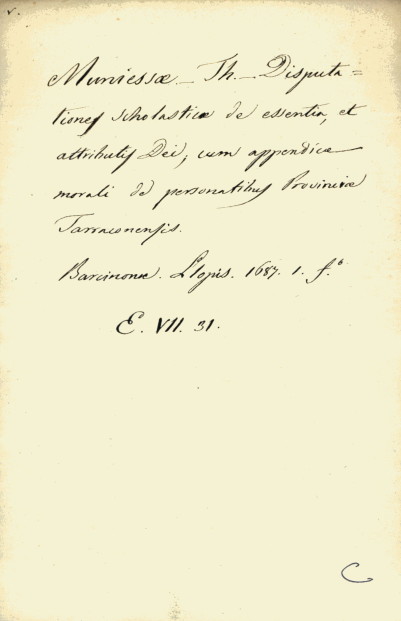 v.
Muniessæ _ Th. _ Disputa=
tiones scholasticæ de essentia, et
attributis Dei, cum appendice
morali de personatibus Provinciæ
Tarraconensis.
Barcinonæ. Llopis. 1687. 1. f.º
E. VII. 31.
C